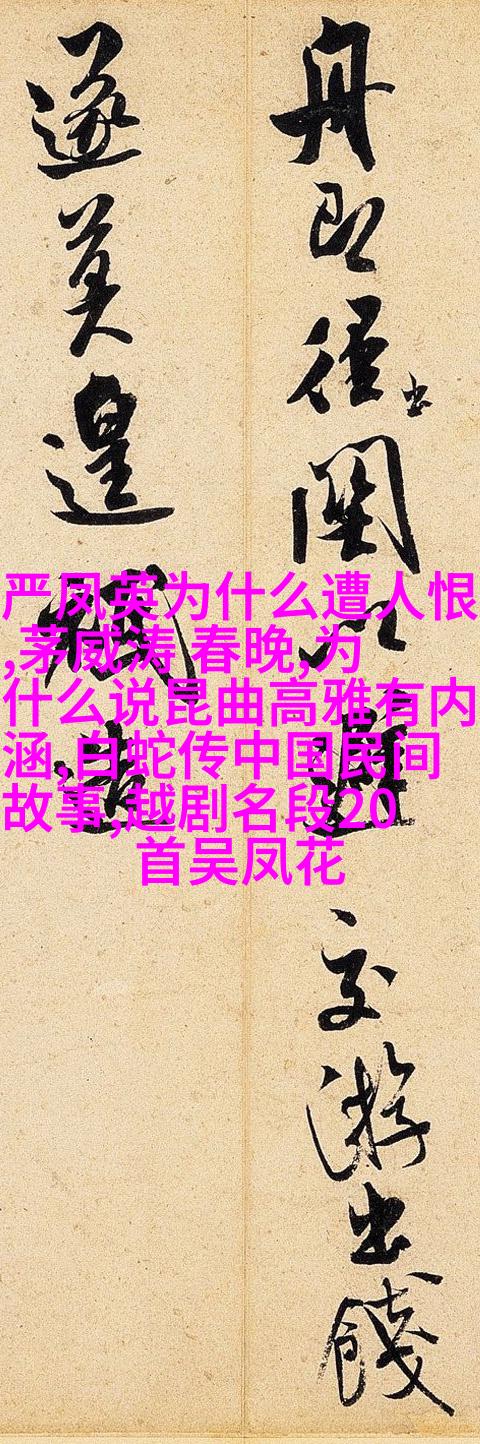 舟即徑出關以避交游出餞
遂莫遑
严凤英为什么遭人恨
,茅威涛 春晚,为
什么说昆曲高雅有内
涵,白蛇传中国民间
故事,越剧名段20
首吴凤花